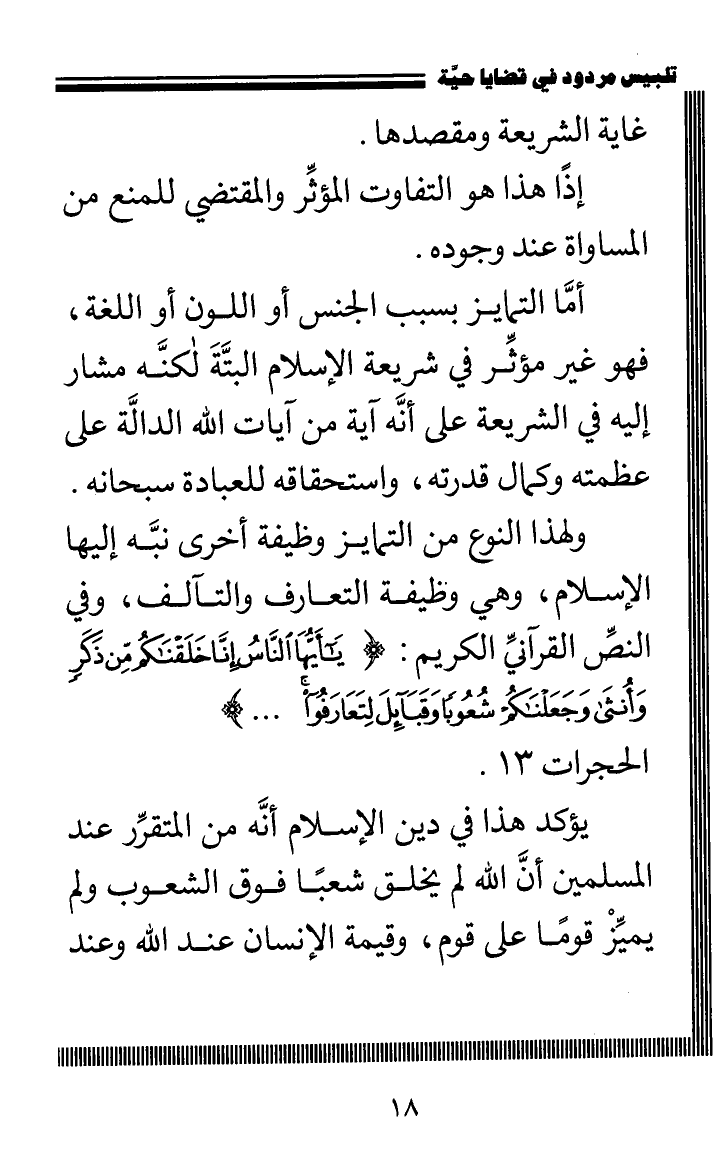 تلبيس مردود في قضايا حيَّة
غاية الشريعة ومقصدها .
إذًا هذا هو التفاوت المؤثِّر والمقتضي للمنع من
المساواة عند وجوده .
أمَّا التمايـز بسبب الجنس أو اللـون أو اللغة ،
فهو غير مؤثِّـر في شريعة الإسلام البتَّةَ لٰكنَّـه مشار
إليه في الشريعة على أنَّه آية من آيات الله الدالَّة على
عظمته وكمال قدرته ، واستحقاقه للعبادة سبحانه .
ولهذا النوع من التمايـز وظيفة أخرى نبَّـه إليها
الإسـلام ، وهـي وظيفـة التعـارف والتـآلـف ، وفي
النصِّ القرآنيِّ الكريم : ﴿ يَـٰٓأَيُّهَا ٱلنَّاسُ إِنَّا خَلَقْنَـٰكُم مِّن ذَكَرٍ
وَأُنثَىٰ وَجَعَلْنَـٰكُمْ شُعُوبًا وَقَبَآئِلَ لِتَعَارَفُوٓا۟ ۚ ... ﴾
الحجرات ١٣ .
يؤكد هذا في دين الإسـلام أنَّه من المتقرِّر عند
المسلمين أنَّ الله لم يخلـق شعبًـا فـوق الشعـوب ولم
يميِّزْ قومًـا على قوم ، وقيمة الإنسان عنـد الله وعند
١٨